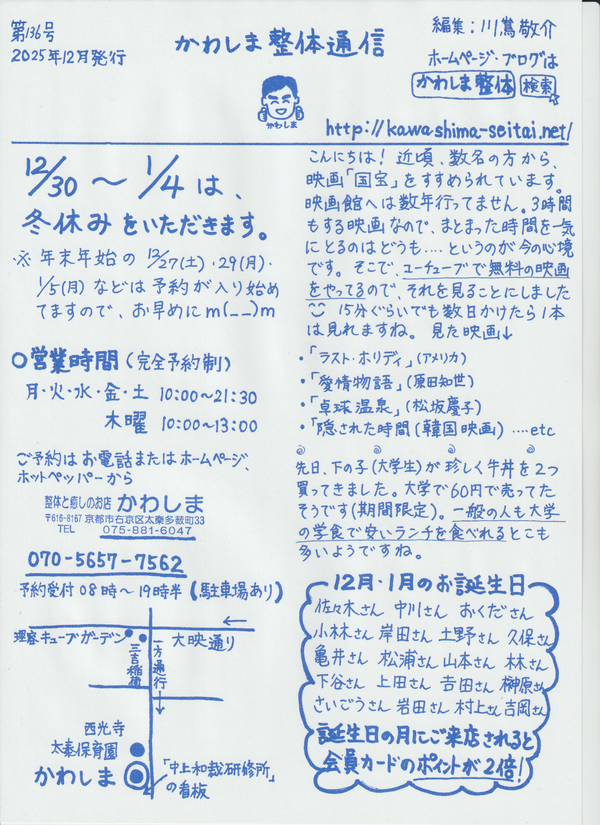 第136号
2025年12月発行
かわしま整体通信
かわしま
編集:川嶌敬介
ホームページ・ブログは
かわしま整体 検索
http://kawashima-seitai.net/
12/30〜1/4は、
冬休みをいただきます。
※年末年始の12/27(土)・29(月)・
1/5(月)などは予約が入り始め
てますので、お早めにm(__)m
○営業時間(完全予約制)
月・火・水・金・土 10:00〜21:30
木曜 10:00〜13:00
ご予約はお電話またはホームページ、
ホットペッパーから
整体と癒しのお店 かわしま
〒616-8167 京都市右京区太秦多薮町33
TEL 075-881-6047
070-5657-7562
予約受付08時〜19時半(駐車場あり)
理容キューブガーデン
大映通り
三吉稲荷
一方通行
西光寺
太秦保育園
かわしま
「中上和裁研修所」
の看板
こんにちは!近頃、数名の方から、
映画「国宝」をすすめられています。
映画館へは数年行ってません。3時間
もする映画なので、まとまった時間を一気
にとるのはどうも‥‥というのが今の心境
です。そこで、ユーチューブで無料の映画
をやってるので、それを見ることにしました
15分ぐらいでも数日かけたら1本
は見れますね。見た映画↓
・「ラスト・ホリディ」(アメリカ)
・「愛情物語」(原田知世)
・「卓球温泉」(松坂慶子)
・「隠された時間(韓国映画)‥‥etc
先日、下の子(大学生)が珍しく牛丼を2つ
買ってきました。大学で60円で売ってた
そうです(期間限定)。一般の人も大学
の学食で安いランチを食べれるとこも
多いようですね。
12月・1月のお誕生日
佐々木さん 中川さん おくださん
小林さん 岸田さん 土野さん 久保さん
亀井さん 松浦さん 山本さん 林さん
下谷さん 上田さん 吉田さん 榊原さん
さいごうさん 岩田さん 村上さん 吉岡さん
誕生日の月にご来店されると
会員カードのポイントが2倍!